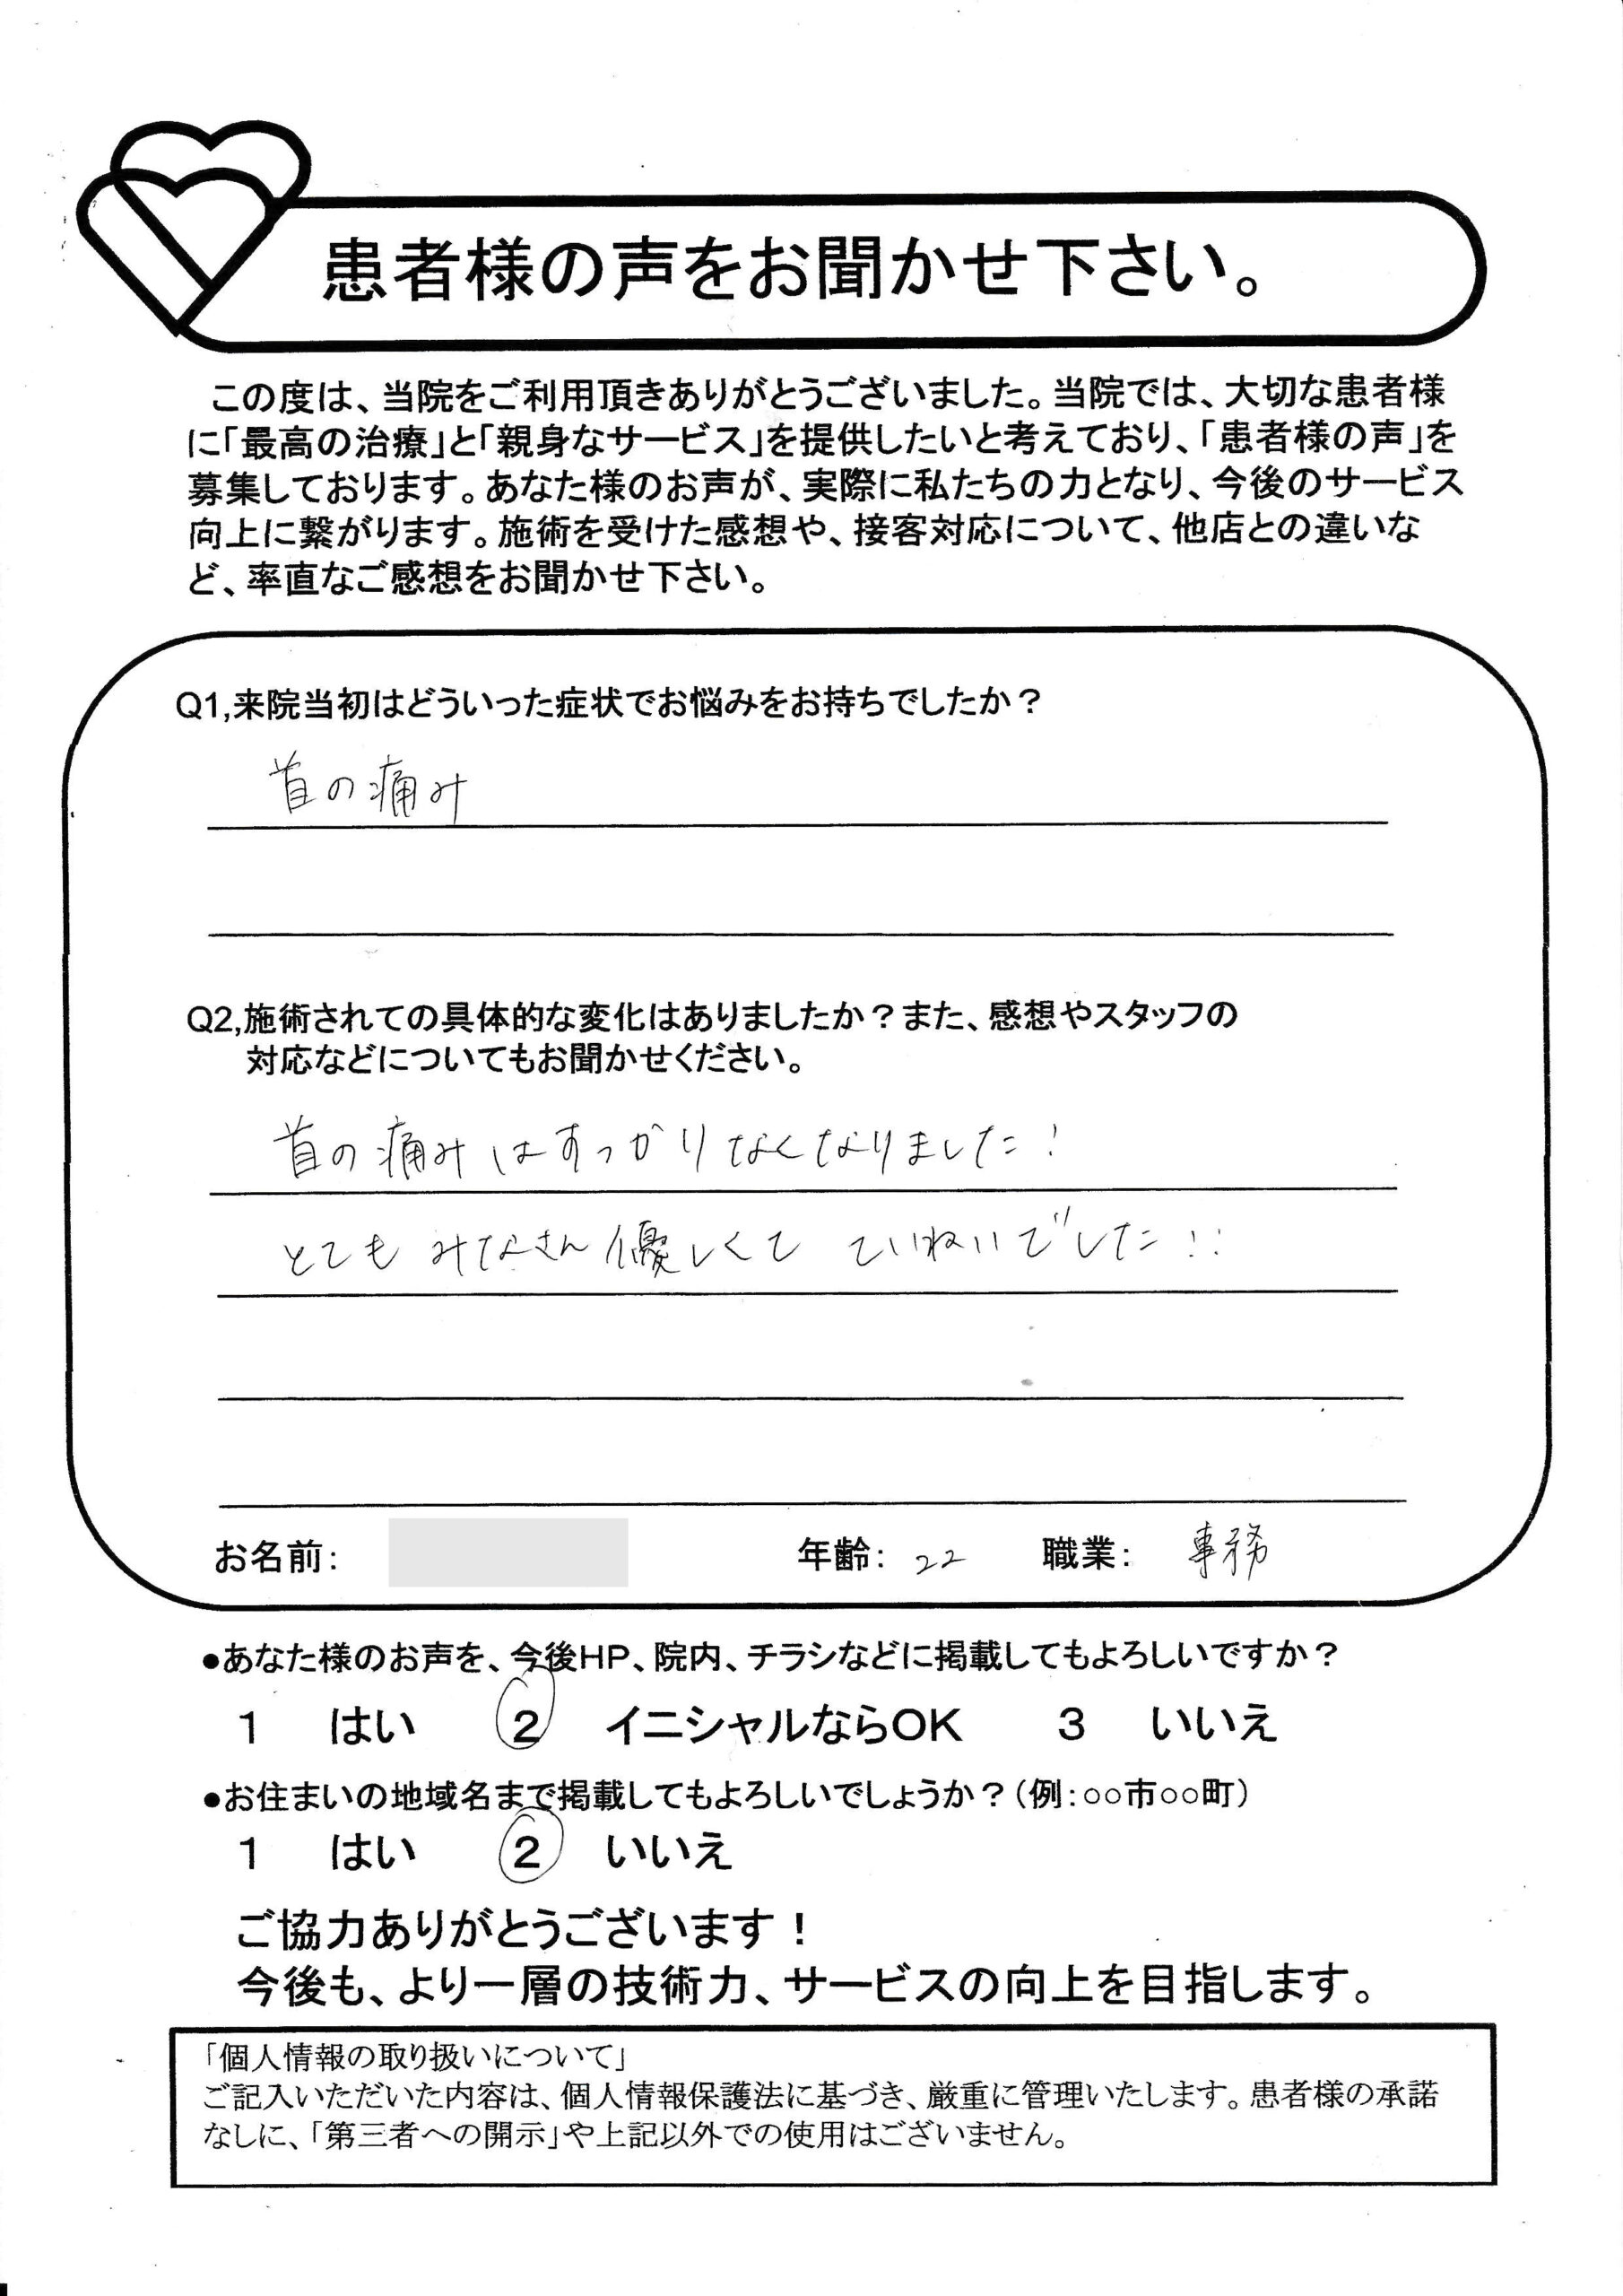 患者様の声をお聞かせ下さい。
この度は、当院をご利用頂きありがとうございました。当院では、大切な患者様
に「最高の治療」と「親身なサービス」を提供したいと考えており、「患者様の声」を
募集しております。あなた様のお声が、実際に私たちの力となり、今後のサービス
向上に繋がります。施術を受けた感想や、接客対応について、他店との違いな
ど、率直なご感想をお聞かせ下さい。
Q1,来院当初はどういった症状でお悩みをお持ちでしたか？
首の痛み
Q2,施術されての具体的な変化はありましたか？また、感想やスタッフの
対応などについてもお聞かせください。
首の痛みはすっかりなくなりました!
とてもみなさん優しくて ていねいでした!!
お名前: 年齢: 22 職業: 事務
●あなた様のお声を、今後HP、院内、チラシなどに掲載してもよろしいですか？
1 はい 2 イニシャルならOK 3 いいえ
●お住まいの地域名まで掲載してもよろしいでしょうか？(例:○○市○○町)
1 はい 2 いいえ
ご協力ありがとうございます！
今後も、より一層の技術力、サービスの向上を目指します。
「個人情報の取り扱いについて」
ご記入いただいた内容は、個人情報保護法に基づき、厳重に管理いたします。患者様の承諾
なしに、「第三者への開示」や上記以外での使用はございません。